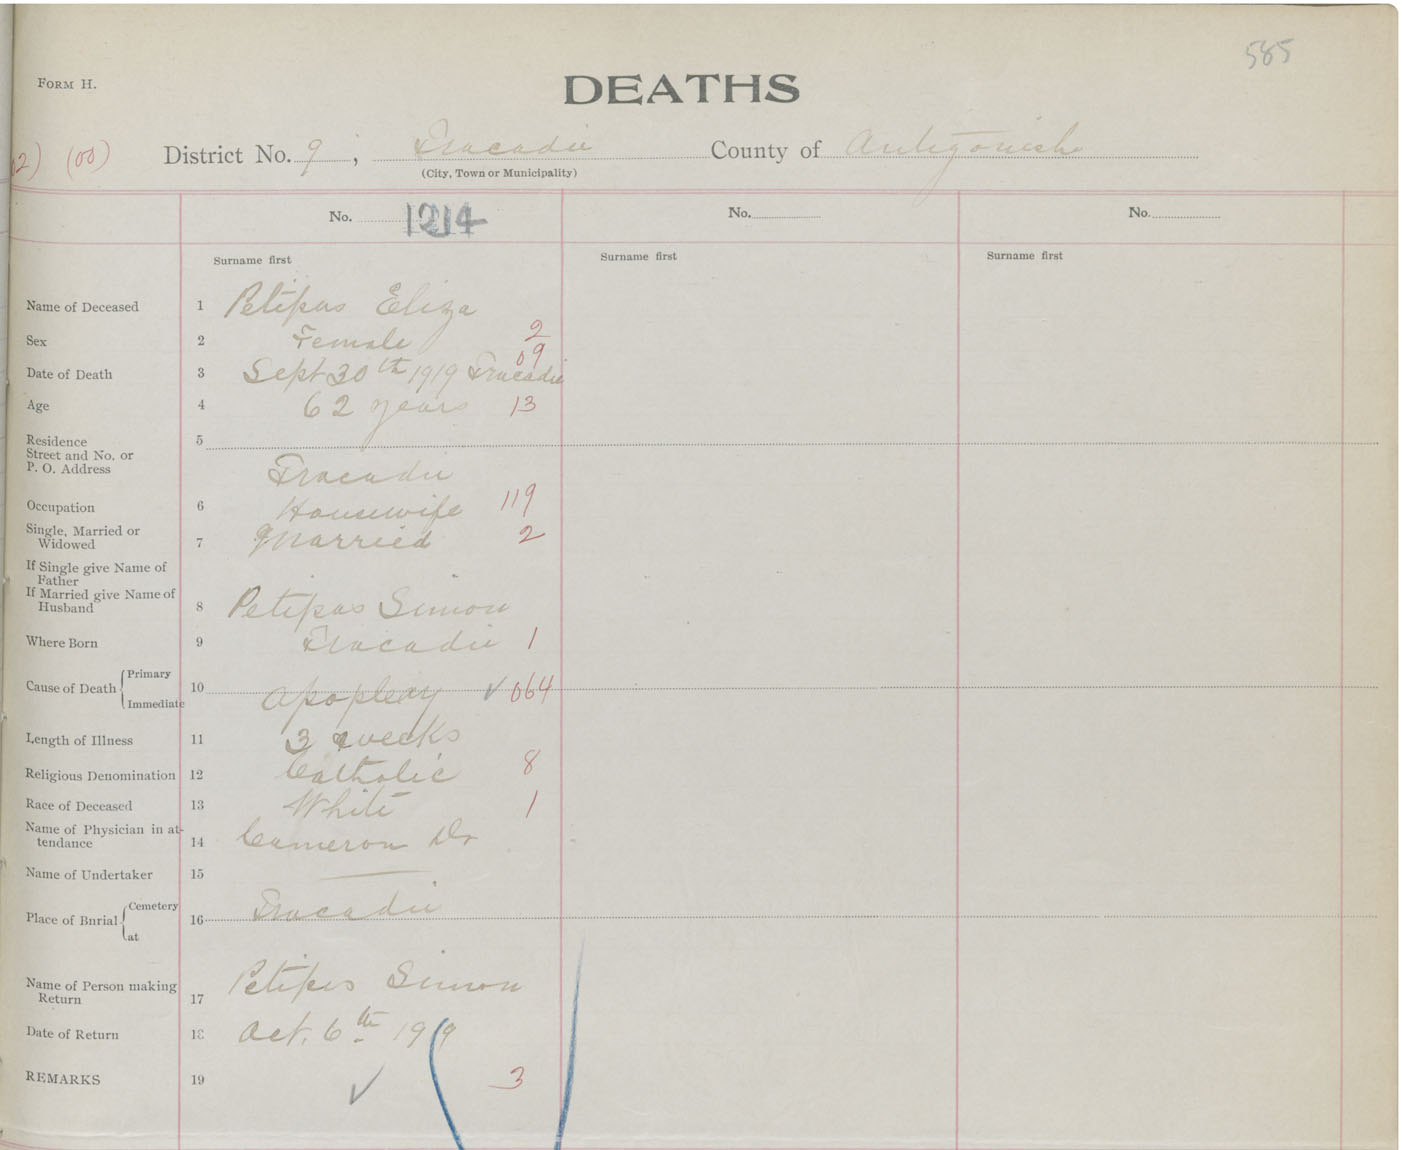 585
FORM H.
DEATHS
(00)
District No. 9, Tracadie County of Antigonish
(City, Town or Municipality)
No. 1214 No. No.
Surname first Surname first Surname first
Name of Deceased 1 Petipas Eliza
Sex 2 Female 2
09
Date of Death 3 Sept 30th 1919 Tracadie
Age 4 62 years 13
Residence 5
Street and No. or
P. O. Address
Tracadie
Occupation 6 Housewife 119
Single, Married or
Widowed 7 Married 2
If Single give Name of
Father
If Married give Name of
Husband 8 Petipas Simon
Where Born 9 Tracadie 1
Cause of Death { Primary
Immediate 10 Apoplexy ✓ 064
Length of Illness 11 3 weeks
Religious Denomination 12 Catholic 8
Race of Deceased 13 White 1
Name of Physician in at-
tendance 14 Cameron Dr
Name of Undertaker 15 —
Place of Burial { Cemetery
at 16 Tracadie
Name of Person making
Return 17 Petipas Simon
Date of Return 18 Oct. 6th 1919
REMARKS 19 ✓ 3